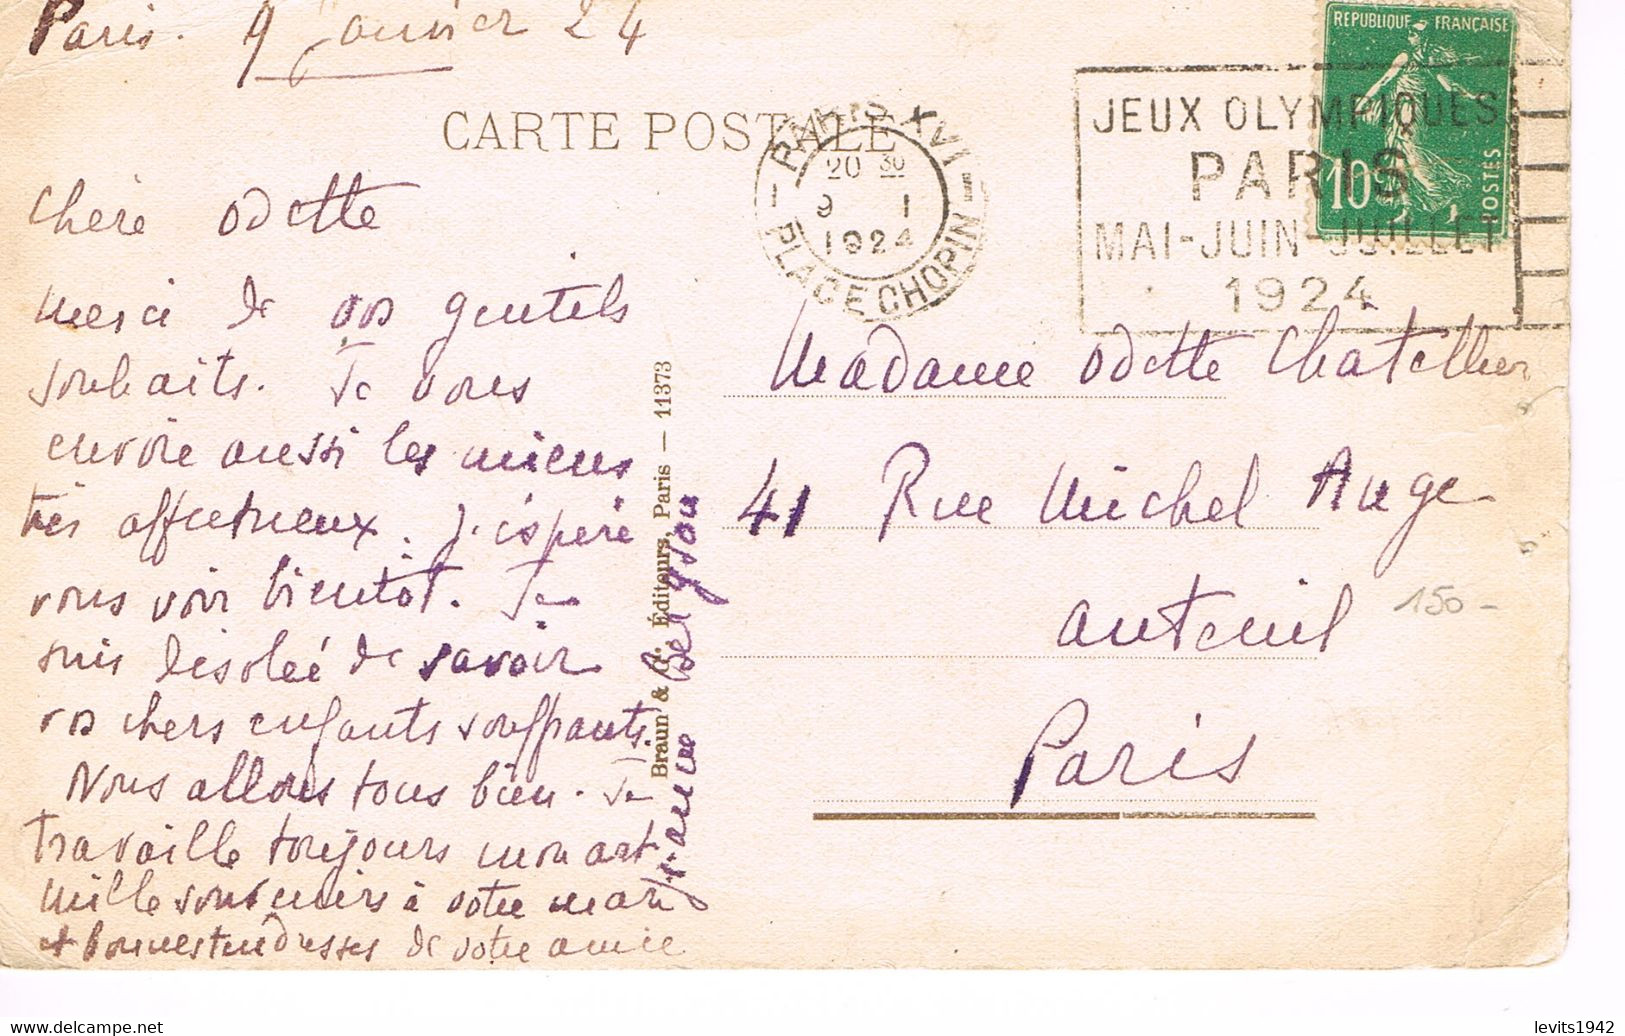 Paris. 9 Janvier 24
CARTE POSTALE
PARIS XVI
20 30
9 1
1924
PLACE CHOPIN
JEUX OLYMPIQUES
PARIS
MAI-JUIN-JUILLET
1924
REPUBLIQUE FRANÇAISE
10c
POSTES
Chère Odette
Merci de vos gentils
souhaits. Je vous
envoie aussi les miens
très affectueux. J'espère
vous voir bientôt. Je
suis désolée de savoir
vos chers enfants souffrants.
Nous allons tous bien. Je
travaille toujours mon art
Mille souvenirs à votre mari
et bonnes tendresses de votre amie
Braun & Éditeurs, Paris — 11373
Madame Odette Chatellier
41 Rue Michel Ange
Auteuil
Paris
150-
levits1942